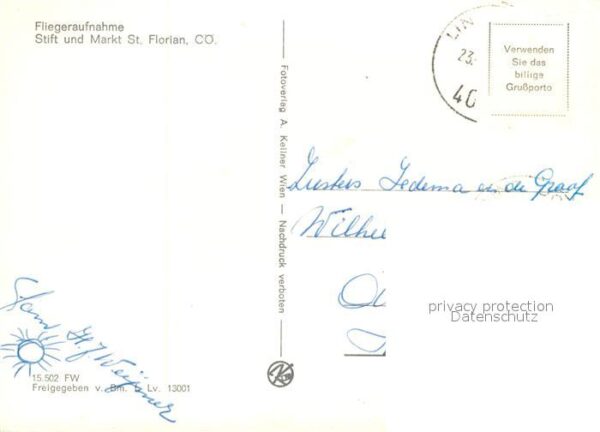 Fliegeraufnahme
Stift und Markt St. Florian, OÖ.
LIN
23.
40
Verwenden
Sie das
billige
Grußporto
Fotoverlag A. Kellner Wien — Nachdruck verboten
Zusters Jedema en de Graaf
Wilhe
privacy protection
Datenschutz
15.502 FW
Freigegeben v. Bm. Lv. 13001